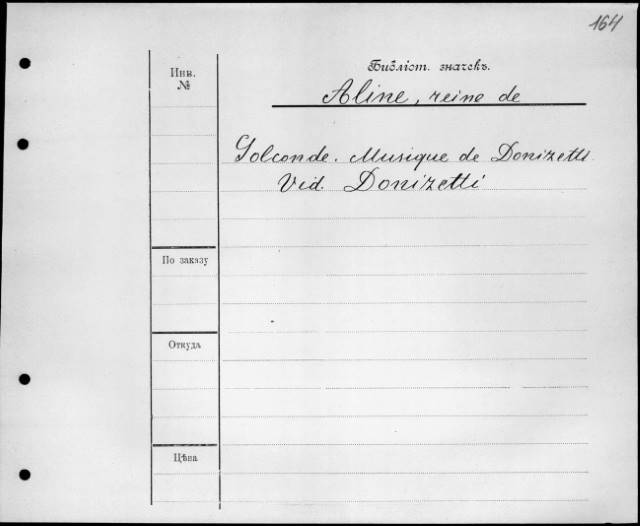 164
Библіот. значекъ.
Инв.
№
Aline, reine de
Golconde. Musique de Donizetti.
Vid. Donizetti
По заказу
Откуда
Цѣна